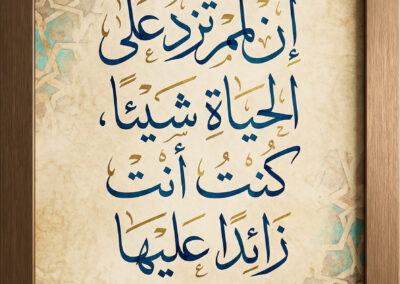 إن لم تزد على
الحياةِ شيئًا،
كنتُ أنت
زائدًا عليها